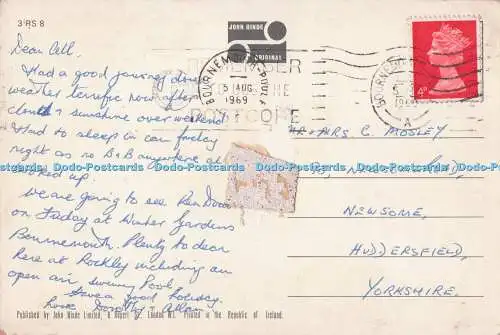 3RS 8
JOHN HINDE
ORIGINAL
BOURNEMOUTH-POOLE
5 AUG
1969
REMEMBER
THE
POSTCODE
BOURNEMOUTH
1969
A
4D
Dear Cell,
Had a good journey down
weather terrific now after
cloud & sunshine over weekend.
Had to sleep in car Friday
night as no B&B anywhere all
booked up.
We are going to see Ken Dodd
on Friday at Winter Gardens
Bournemouth. Plenty to do on
here at Rockley including an
open air swimg Pool.
Have a good holiday.
Love Dorothy & Allan.
MR & MRS C. MOSLEY
NEWSOME,
HUDDERSFIELD,
YORKSHIRE.
Published by John Hinde Limited, 6 Rupert St., London W1. Printed in the Republic of Ireland.
Postcards World Postcards World Postcards World Postcards World Postcards World Postcards World